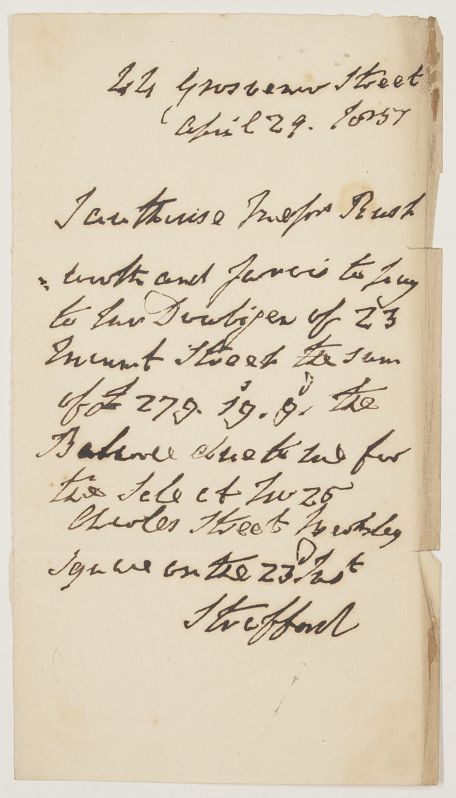 44 Grosvenor Street
April 29. 1857
I authorise Messrs Rush
= worth and Jarvis to pay
to Mr Durlacher of 23
Mount Street the sum
of £ 279. 19s. 9d. the
Balance due to me for
the Sale at No 25
Charles Street Berkeley
Square on the 23d Inst
Strafford